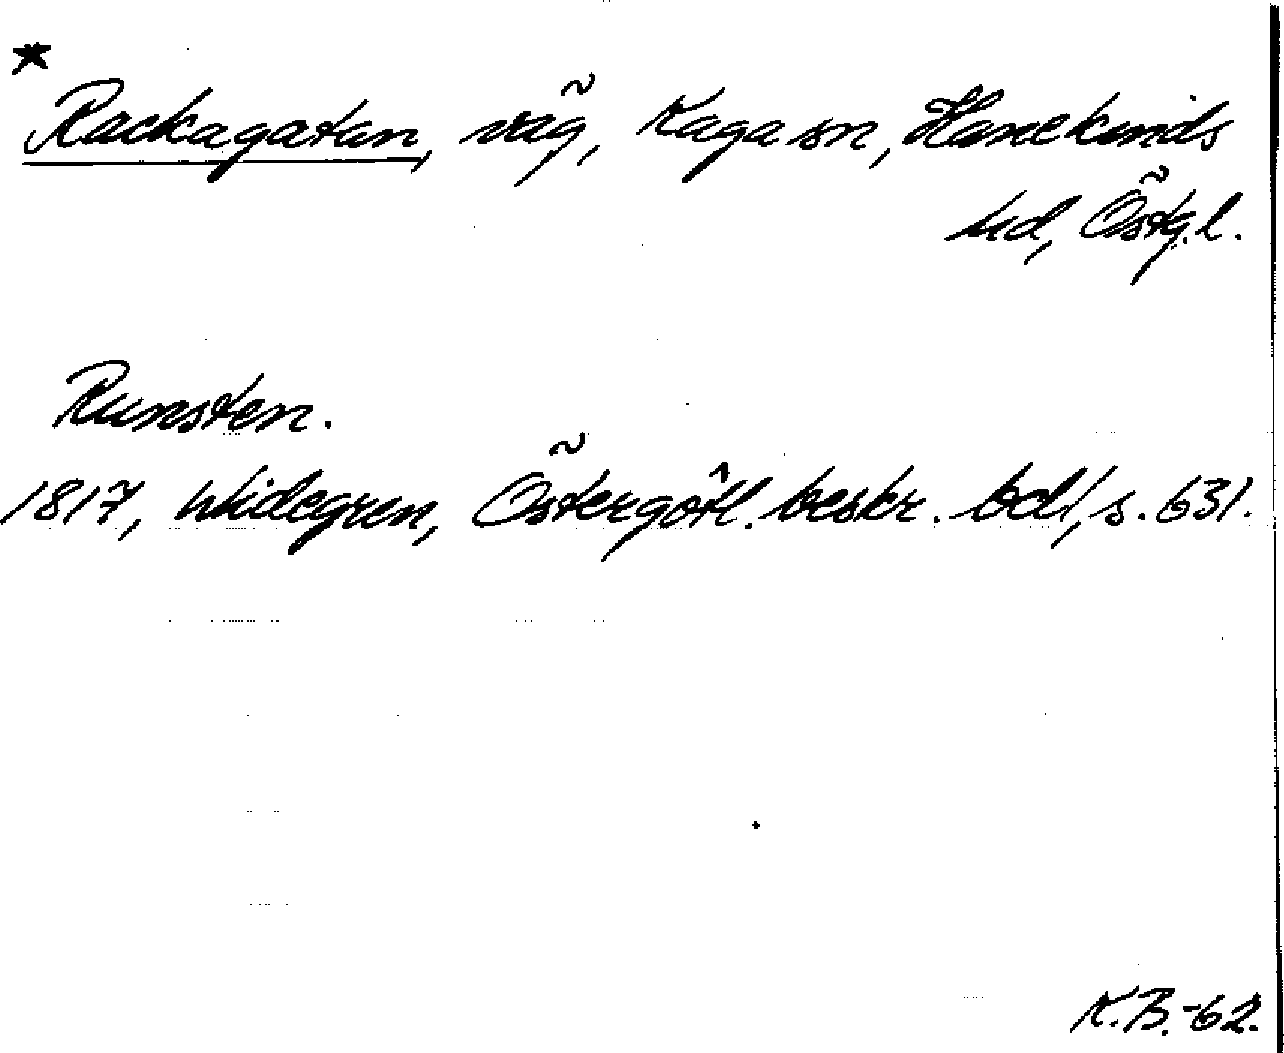 * Rackagatan, väg, Kaga sn, Hanekinds
hd, Östg.l.
Runsten.
1817, Widegren, Östergötl. beskr. bd 1, s. 631.
K.B.-62.